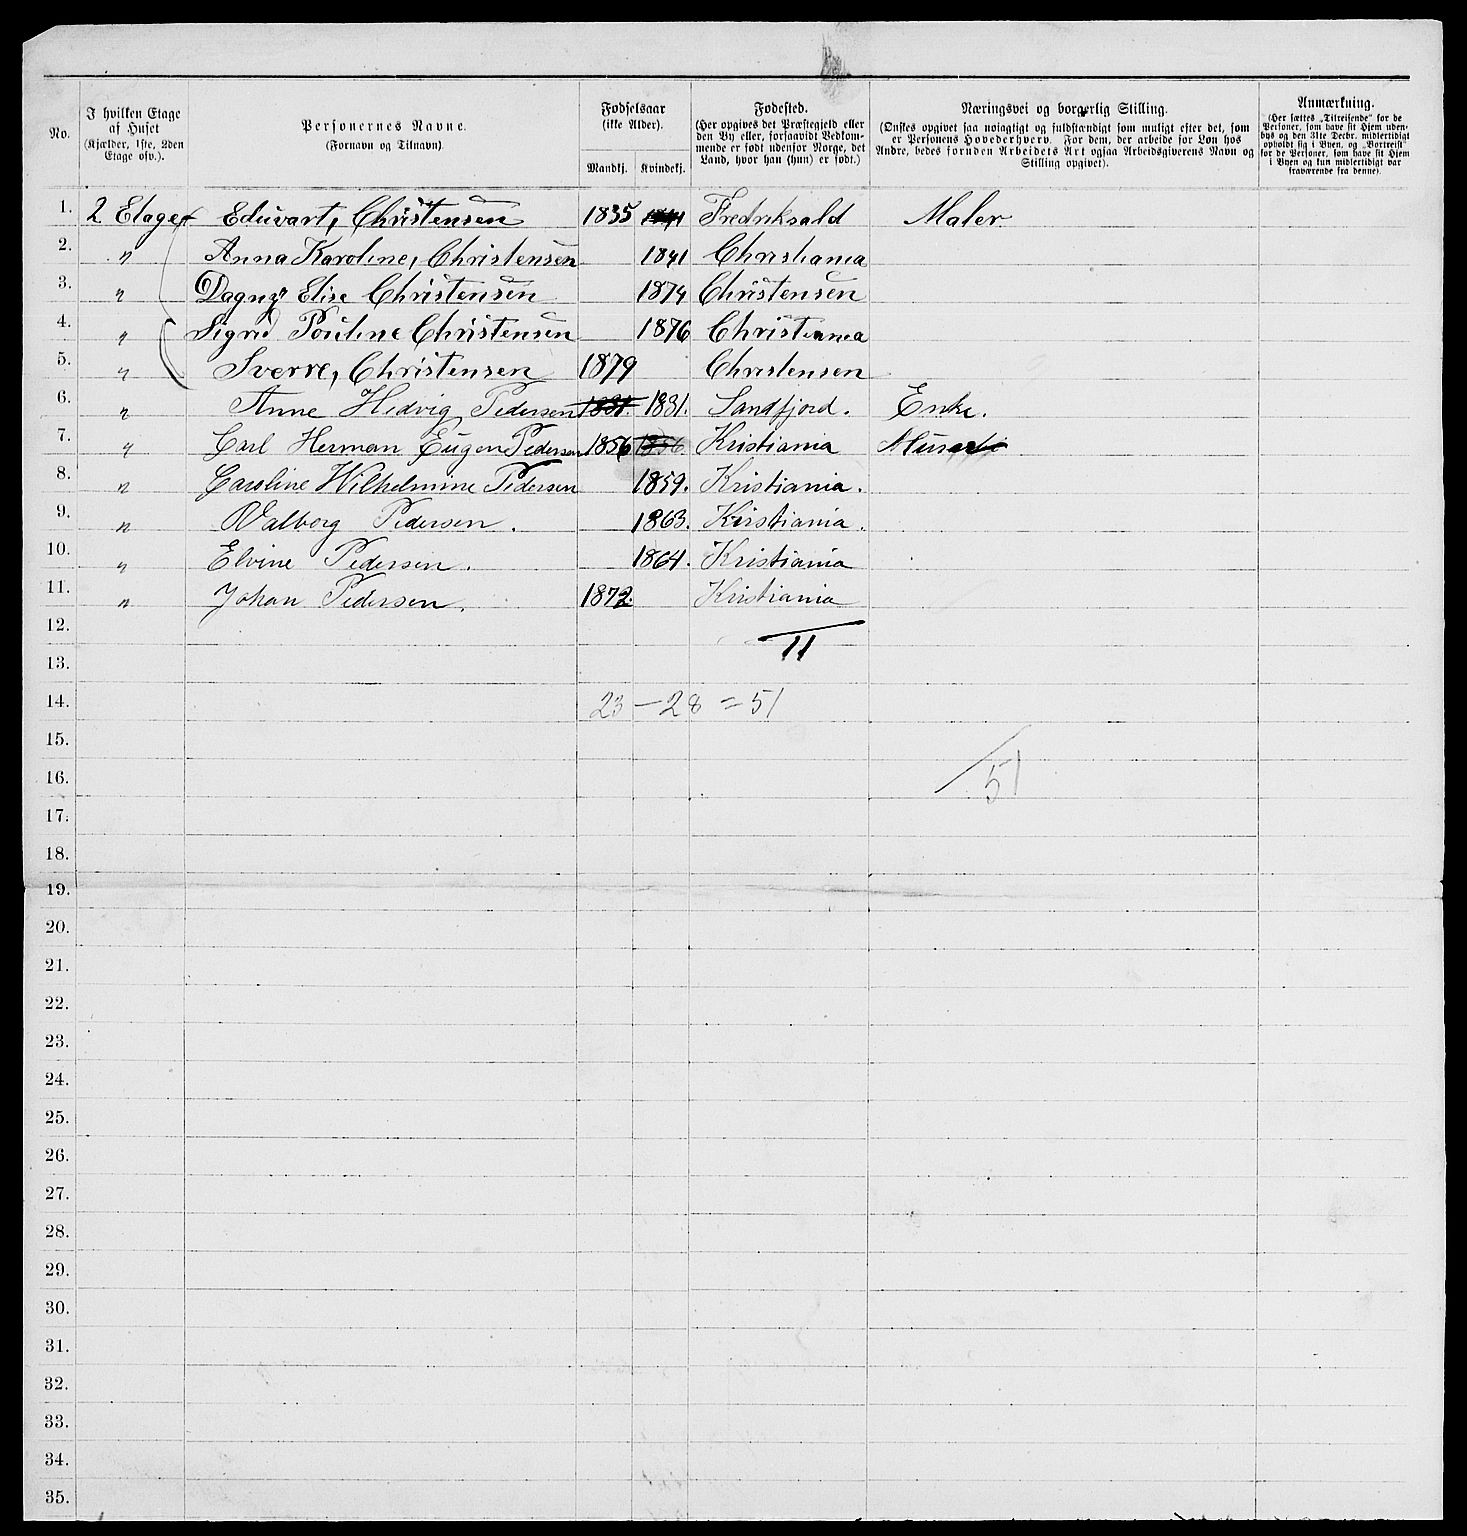 No.
I hvilken Etage af Huset (Kjælder, 1ste, 2den Etage osv.).
Personernes Navne. (Fornavn og Tilnavn).
Fødselsaar (ikke Alder).
Mandkj. Kvindekj.
Fødested. (Her opgives det Præstegjeld eller den By eller, forsaavidt Vedkommende er født udenfor Norge, det Land, hvor han (hun) er født.)
Næringsvei og borgerlig Stilling. (Ønskes opgivet saa nøiagtigt og fuldstændigt som muligt efter det, som er Personens Hovederhverv. For dem, der arbeide for Løn hos Andre, bedes foruden Arbeidets Art ogsaa Arbeidsgiverens Navn og Stilling opgivet).
Anmærkning. (Her sættes „Tilreisende“ for de Personer, som have sit Hjem udenbys og den 31te Decbr. midlertidigt opholdt sig i Byen, og „Bortreist“ for de Personer, som have sit Hjem i Byen og kun midlertidigt var fraværende fra denne).
1. 2 Etage Eduvart, Christensen 1835 Fredriksald Maler.
2. " Anna Karoline, Christensen 1841 Christiania
3. " Dagny Elise Christensen 1874 Christensen
4. " Sigrid Pouline Christensen 1876 Christiania
5. " Sverre, Christensen 1879 Christensen
6. " Anne Hedvig Pedersen 1831. 1831. Sandfjord. Enke.
7. " Carl Herman Eugen Pedersen 1856 1856 Kristiania
8. " Caroline Wilhelmine Pedersen 1859. Kristiania.
9. " Valborg Pedersen. 1863. Kristiania.
10. " Elvine Pedersen. 1864. Kristiania
11. " Johan Pedersen. 1872. Kristiania
12.
11
13.
14. 23 — 28 = 51
15.
16. 51
17.
18.
19.
20.
21.
22.
23.
24.
25.
26.
27.
28.
29.
30.
31.
32.
33.
34.
35.